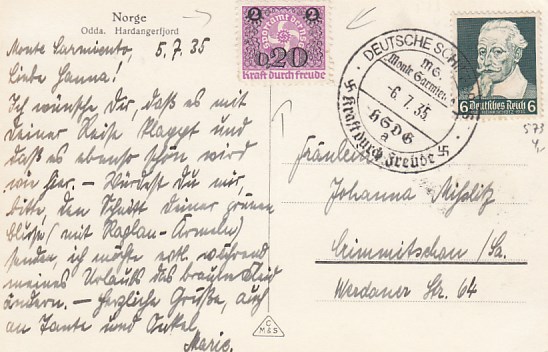 Norge
Odda. Hardangerfjord
Monte Sarmiento, 5.7.35
Liebe Hanna!
Ich wünsche Dir, daß es mit
Deiner Reise klappt und
daß es ebenso schön wird
wie hier. – Würdest Du mir,
bitte, den Schnitt Deiner grünen
Bluse (mit Raglan-Ärmeln)
senden, ich möchte evtl. während
meines Urlaubs das braune Kleid
ändern. – Herzliche Grüße, auch
an Tante und Onkel
Marie.
2 2
0,20
Kraft durch Freude
DEUTSCHE
M.S.
Monte Sarmiento
-6.7.35
HSDG
a
Kraft durch Freude
6 Deutsches Reich 6
573
Fräulein
Johanna
Crimmitschau /Sa.
Werdauer Str. 64
C
M&S